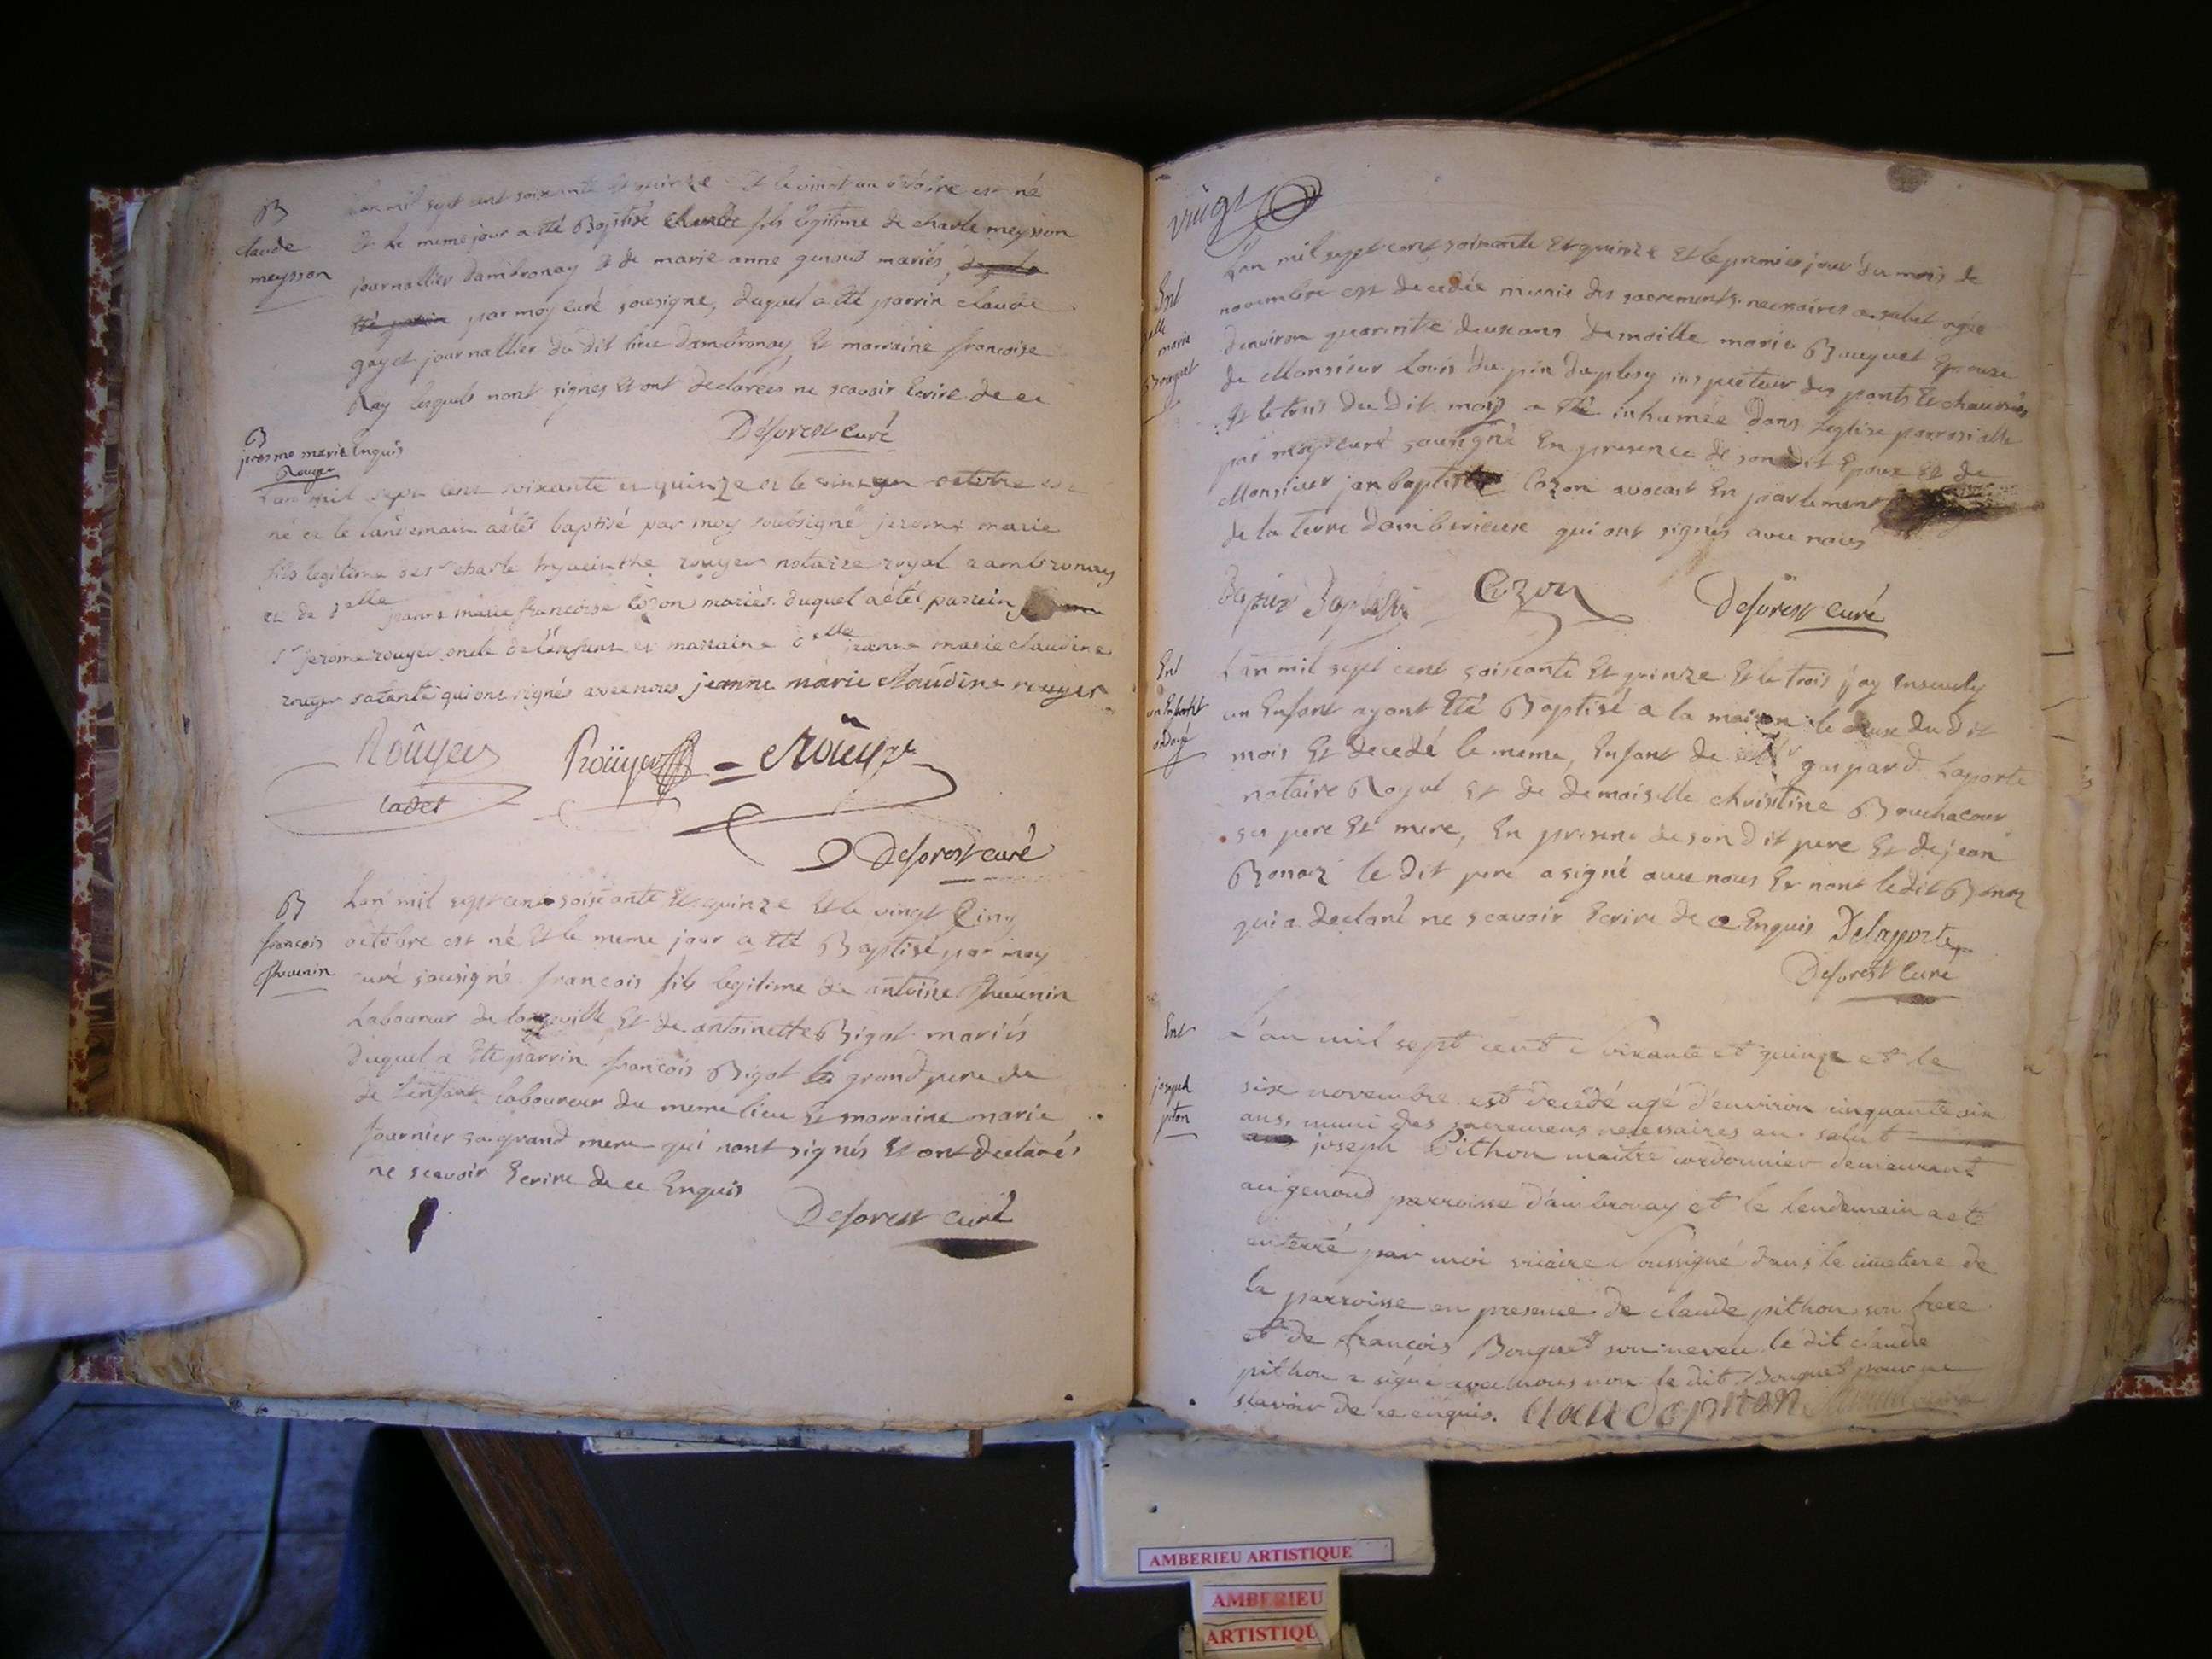 B
claude
meysson
Lan mil sept cent soixante et quinze Et le vingt un octobre est né
Et le meme jour a été Baptisé Claude fils legitime de charle meysson
journallier dambronay Et de marie anne mariés,
par moy curé sousigné, duquel a été parrin claude
gayet journallier du dit lieu dambronay Et marraine francoise
Ray lesquels nont signes Et ont declarées ne scavoir Ecrire de ce
Enquis
Deforest curé
B
jerosme marie
Rouyer
Lan mil sept cent soixante et quinze et le vingt un octobre est
né et le landemain aétét baptisé par moy soubsigné jerome marie
fils legitime de sr charle hyacinthe rouyer notaire royal a ambronay
et de dlle jeanne marie francoise Cozon mariés duquel aétét parrein
sr jerome rouyer oncle de lenfant et marraine dlle jeanne marie claudine
rouyer satante qui ont signés avec nous jeanne marie claudine rouyer
Roüyer
cadet
Roüyer
Roüyer
Deforest curé
B
francois
thevenin
Lan mil sept cent soixante Et quinze Et le vingt Cinq
octobre est né Et le meme jour a été Baptisé par moy
curé sousigné francois fils legitime de antoine thevenin
Laboureur de longeville Et de antoinette Bigot mariés
duquel a été parrin francois Bigot grand pere de
de l'enfant laboureur du meme lieu Et marraine marie
fournier sa grand mere qui nont signés Et ont declarés
ne scavoir Ecrire de ce Enquis
Deforest curé
vingt
Ent
dlle
marie
Bouquet
Lan mil sept cent soixante Et quinze Et le premier jour du mois de
novembre est decedée munie des sacrements necessaires a salut agée
denviron quarente deux ans demoille marie Bouquet Epouse
de Monsieur Louis du pin duplesy inspecteur des ponts Et chaussés
Et le trois du dit mois a été inhumée dans leglise parrosialle
par moy curé sousigné En presence de son dit Epoux Et de
Monsieur jan baptiste Cozon avocat En parlement
de la terre damberieux qui ont signés avec nous
Cozon
Deforest curé
Ent
un Enfant
ondoyé
Lan mil sept cent soixante Et quinze Et le trois jay Ensevely
un Enfant ayant Eté Baptisé a la maison le deux du dit
mois Et decedé le meme, Enfant de sr gaspard Laporte
notaire Royal Et de demoiselle christine Bouchacour
ses pere Et mere, En presence de son dit pere Et de jean
Bonaz le dit pere a signé avec nous Et nont ledit Bonaz
qui a declaré ne scavoir Ecrire de ce Enquis Delaporte
Deforest Curé
Ent
joseph
piton
L'an mil sept cent soixante et quinze et le
six novembre est decédé agé d'environ cinquante six
ans, muni des sacremens necessaires au salut
joseph Pithon maitre cordonnier demeurant
au genoud parroisse d'ambronay et le lendemain a eté
enterré par moi vicaire soussigné dans le cimetiere de
la parroisse en presence de claude pithon son frere
et de françois Bouquet son neveu le dit claude
pithon a signé avec nous non le dit Bouquet pour ne
scavoir de ce enquis. claude piton
AMBERIEU ARTISTIQUE
AMBERIEU
ARTISTIQU